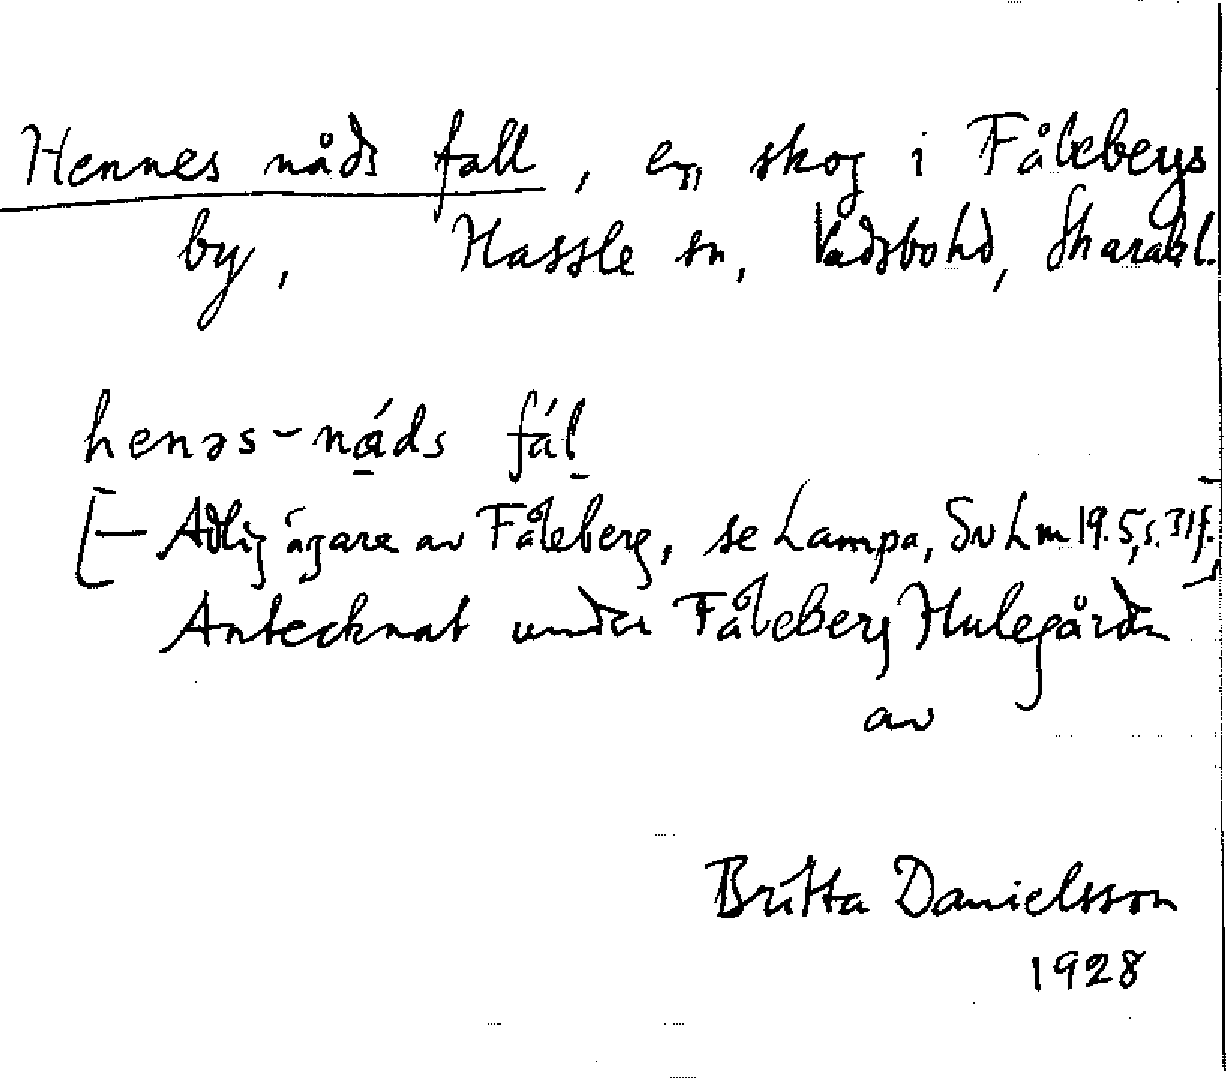 Hennes nåds fall, en skog i Fålebergs
by, Hassle sn, Vadsbo hd, Skarabl.
henəs-nά̲ds fál̲
[— Adlig ägare av Fåleberg, se Lampa, Sv Lm 19.5, s. 31f.]
Antecknat under Fåleberg Hulegården
av
Britta Danielsson
1928